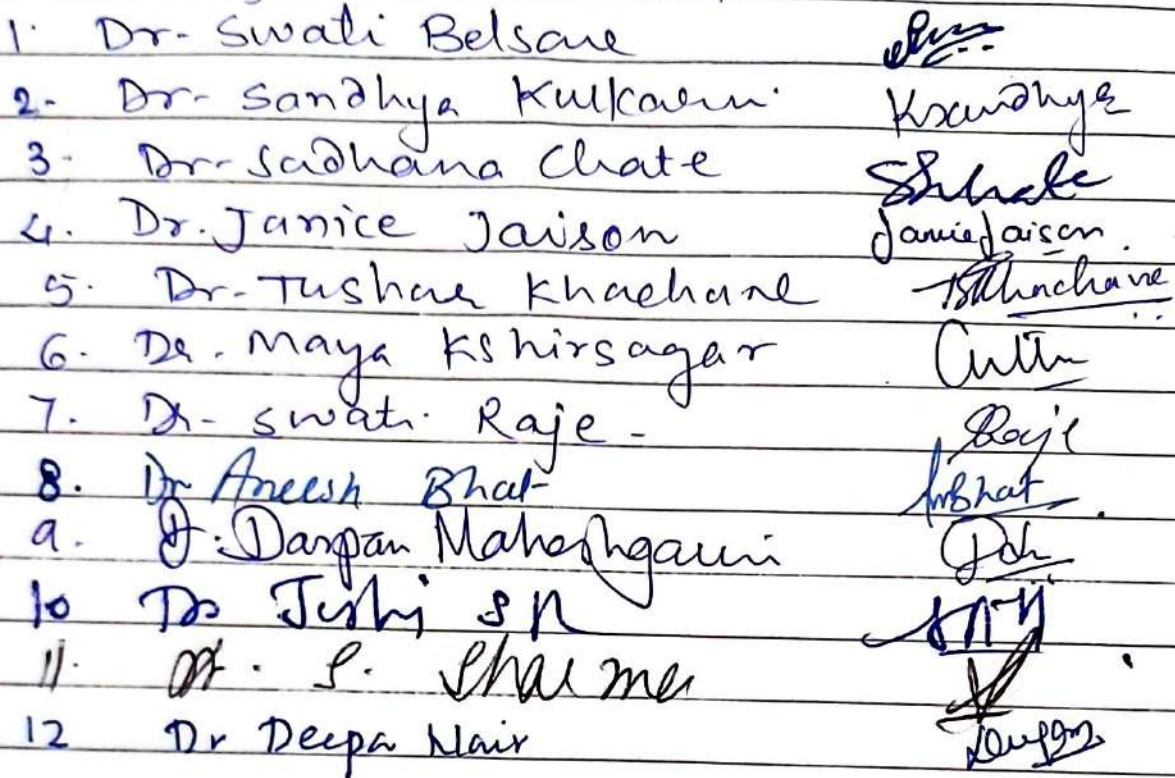 1. Dr- Swati Belsare
2- Dr- Sandhya Kulkarni Ksandhya
3- Dr- Sadhana Chate SChate
4. Dr. Janice Jaison Janice Jaison.
5. Dr- Tushar Khachane Khachane
6. Dr. Maya Kshirsagar
7. Dr- Swati Raje - Raje
8. Dr Aneesh Bhat Bhat
9. Dr. Darpan
10 Dr Joshi S R
11. Dr. S. Sharma
12 Dr Deepa Nair